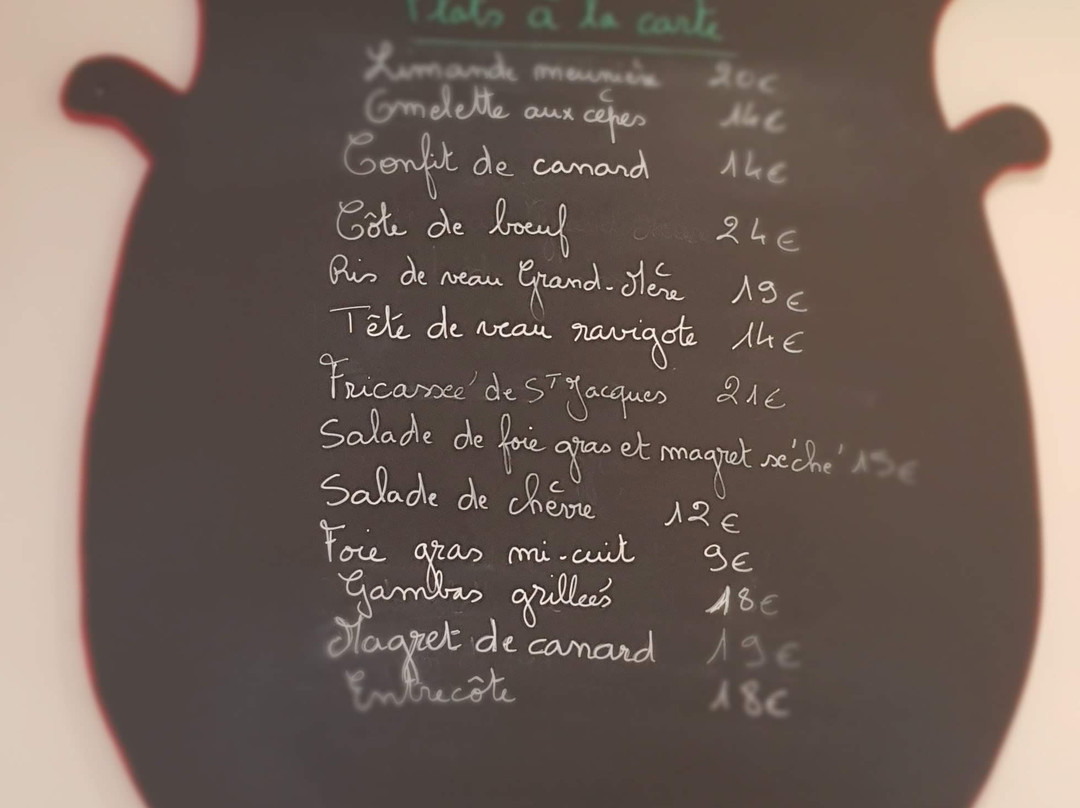 Plats à la carte
Limande meunière 20€
Omelette aux cêpes 14€
Confit de canard 14€
Côte de boeuf 24€
Ris de veau Grand-Mère 19€
Tête de veau ravigote 14€
Fricassée de ST Jacques 21€
Salade de foie gras et magret séché 15€
Salade de chèvre 12€
Foie gras mi-cuit 9€
Gambas grillées 18€
Magret de canard 19€
Entrecôte 18€